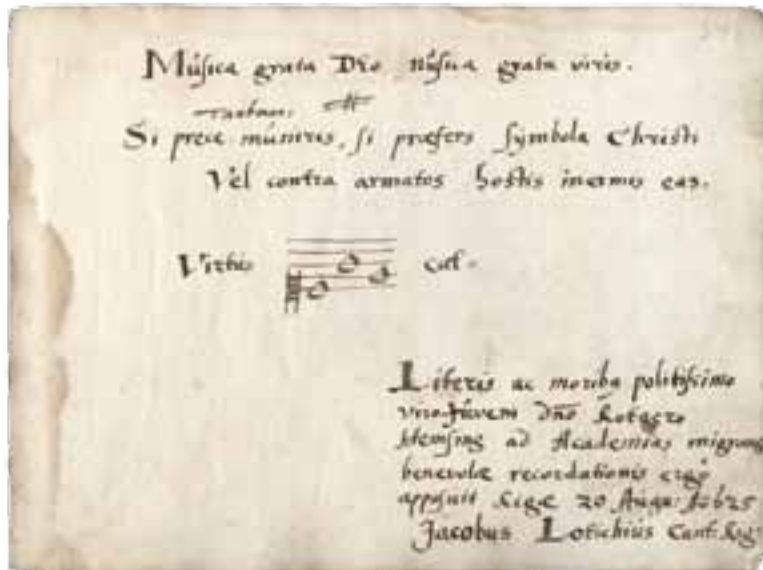 Musica grata Deo musica grata viris.
Si prece muneris, si præfers Symbola Christi
Vel contra armatos hostis inermis eas.
Virtus cæl.
Literis ac moribꝫ politissimo
viro-Juveni dno Rotgero
Hemsing ad Academias migranti
benevolæ recordationis ergo
apposuit Rigæ 20 Augu: Ao 625
Jacobus Lotichius Cant: Rig: